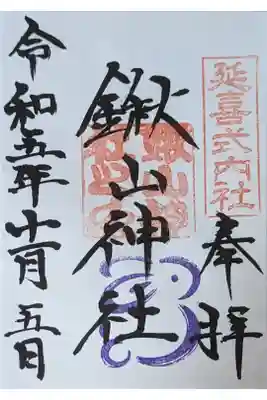 延喜式内社
奉拝
鍬山神社
令和五年十一月五日